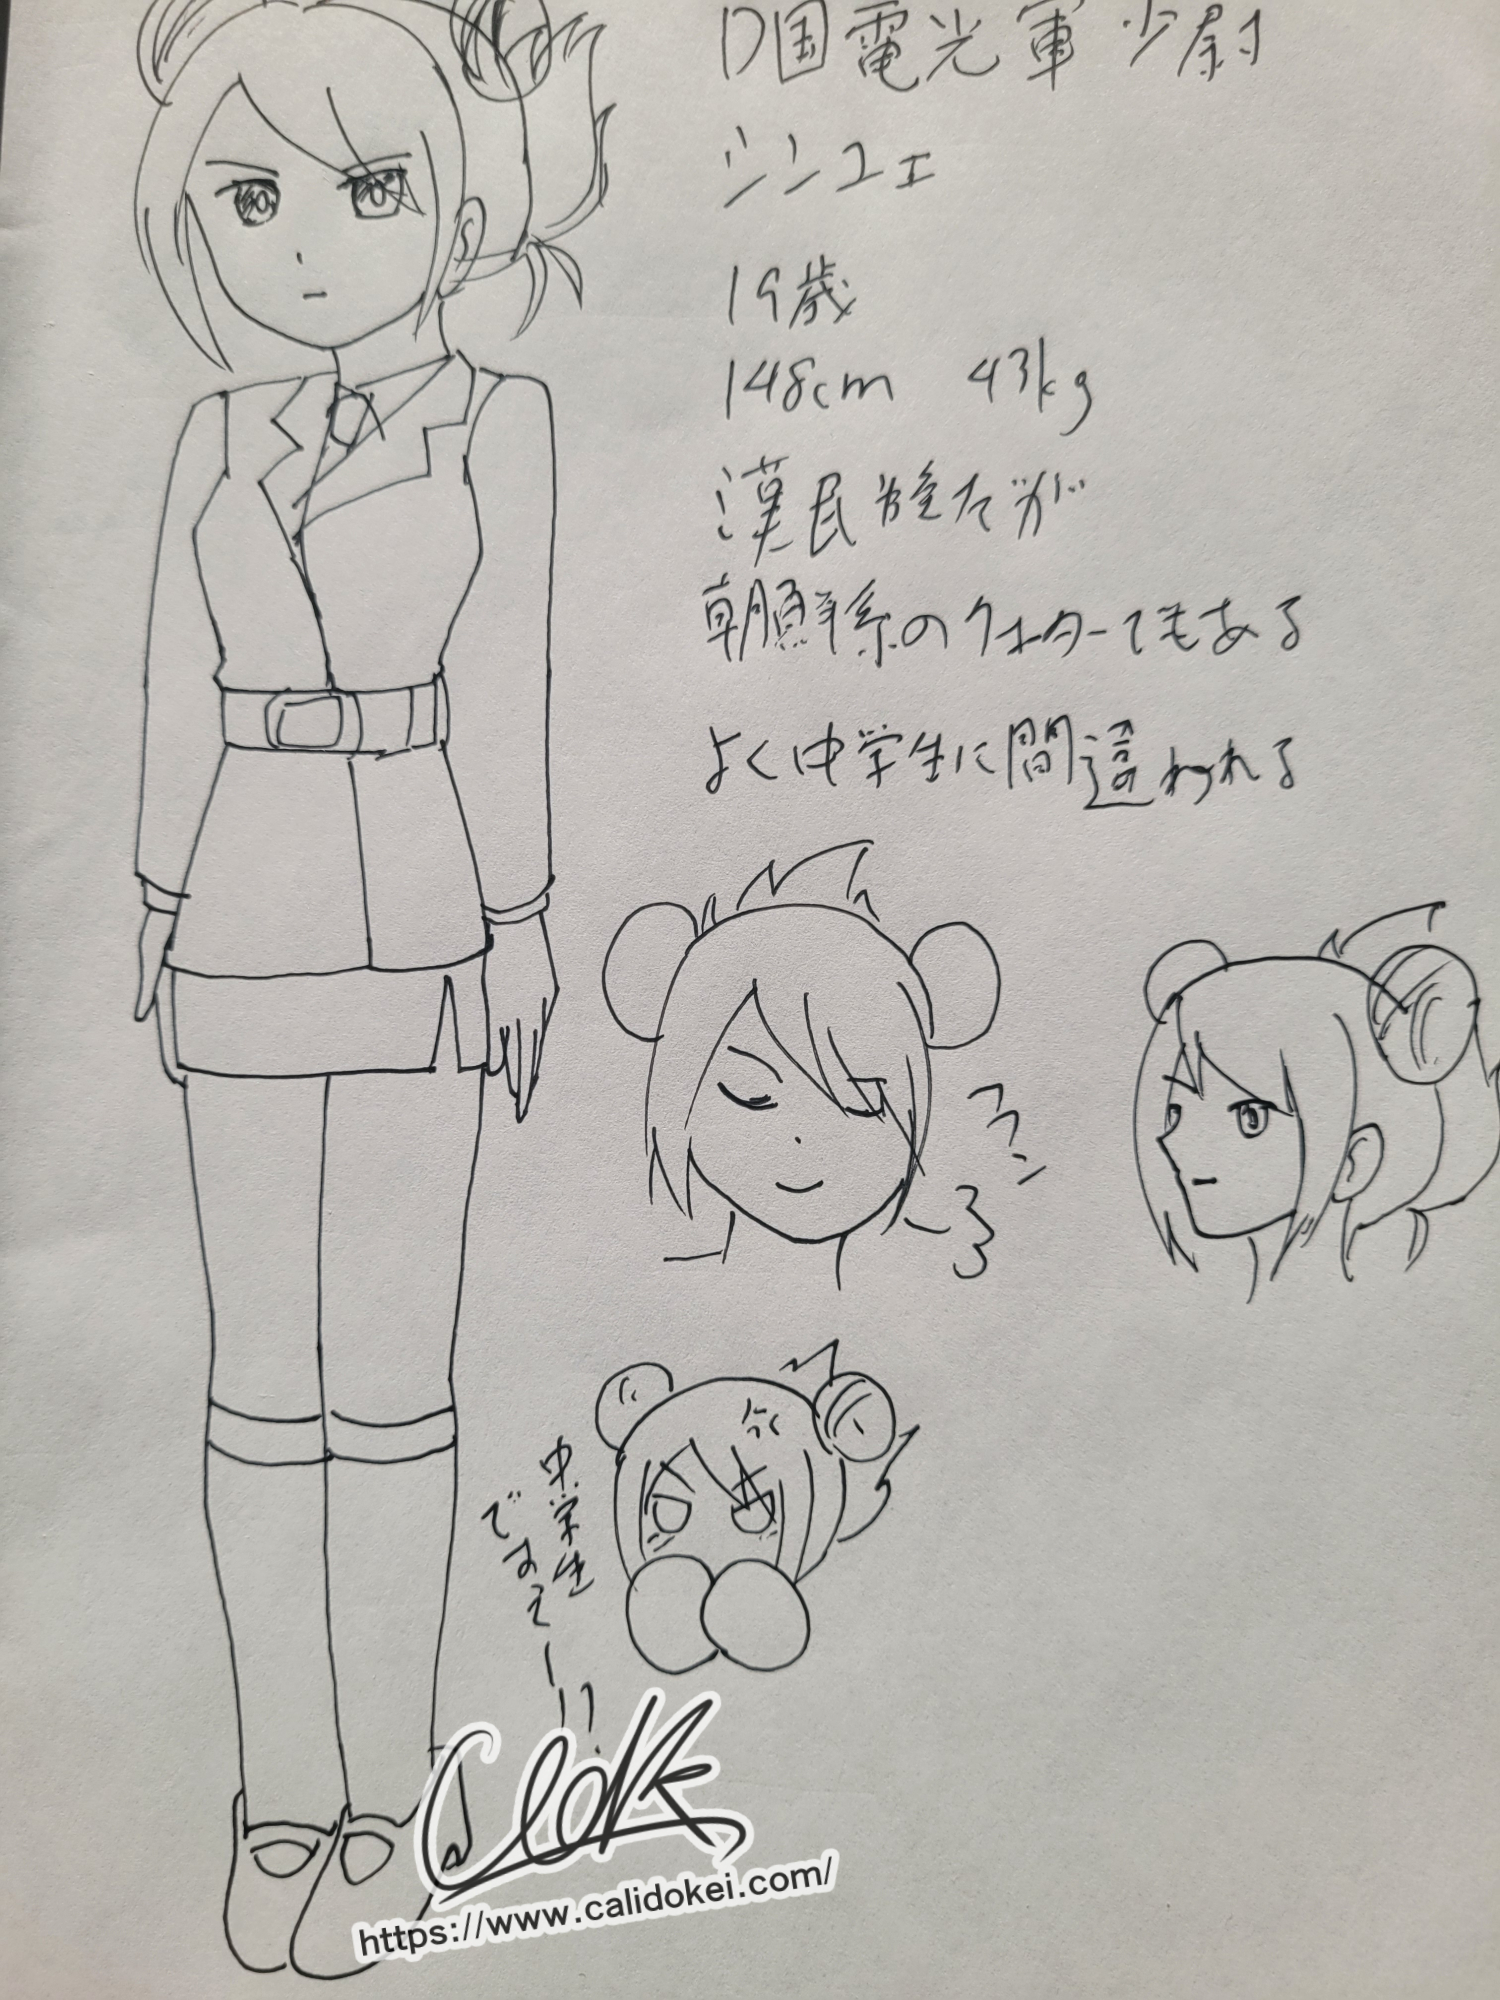 D国電光軍少尉
シンユエ
19歳
148cm 43kg
漢民族だが
朝鮮系のクォーターでもある
よく中学生に間違われる
フンろ
中学生
でねえー!!
CldK
https://www.calidokei.com/